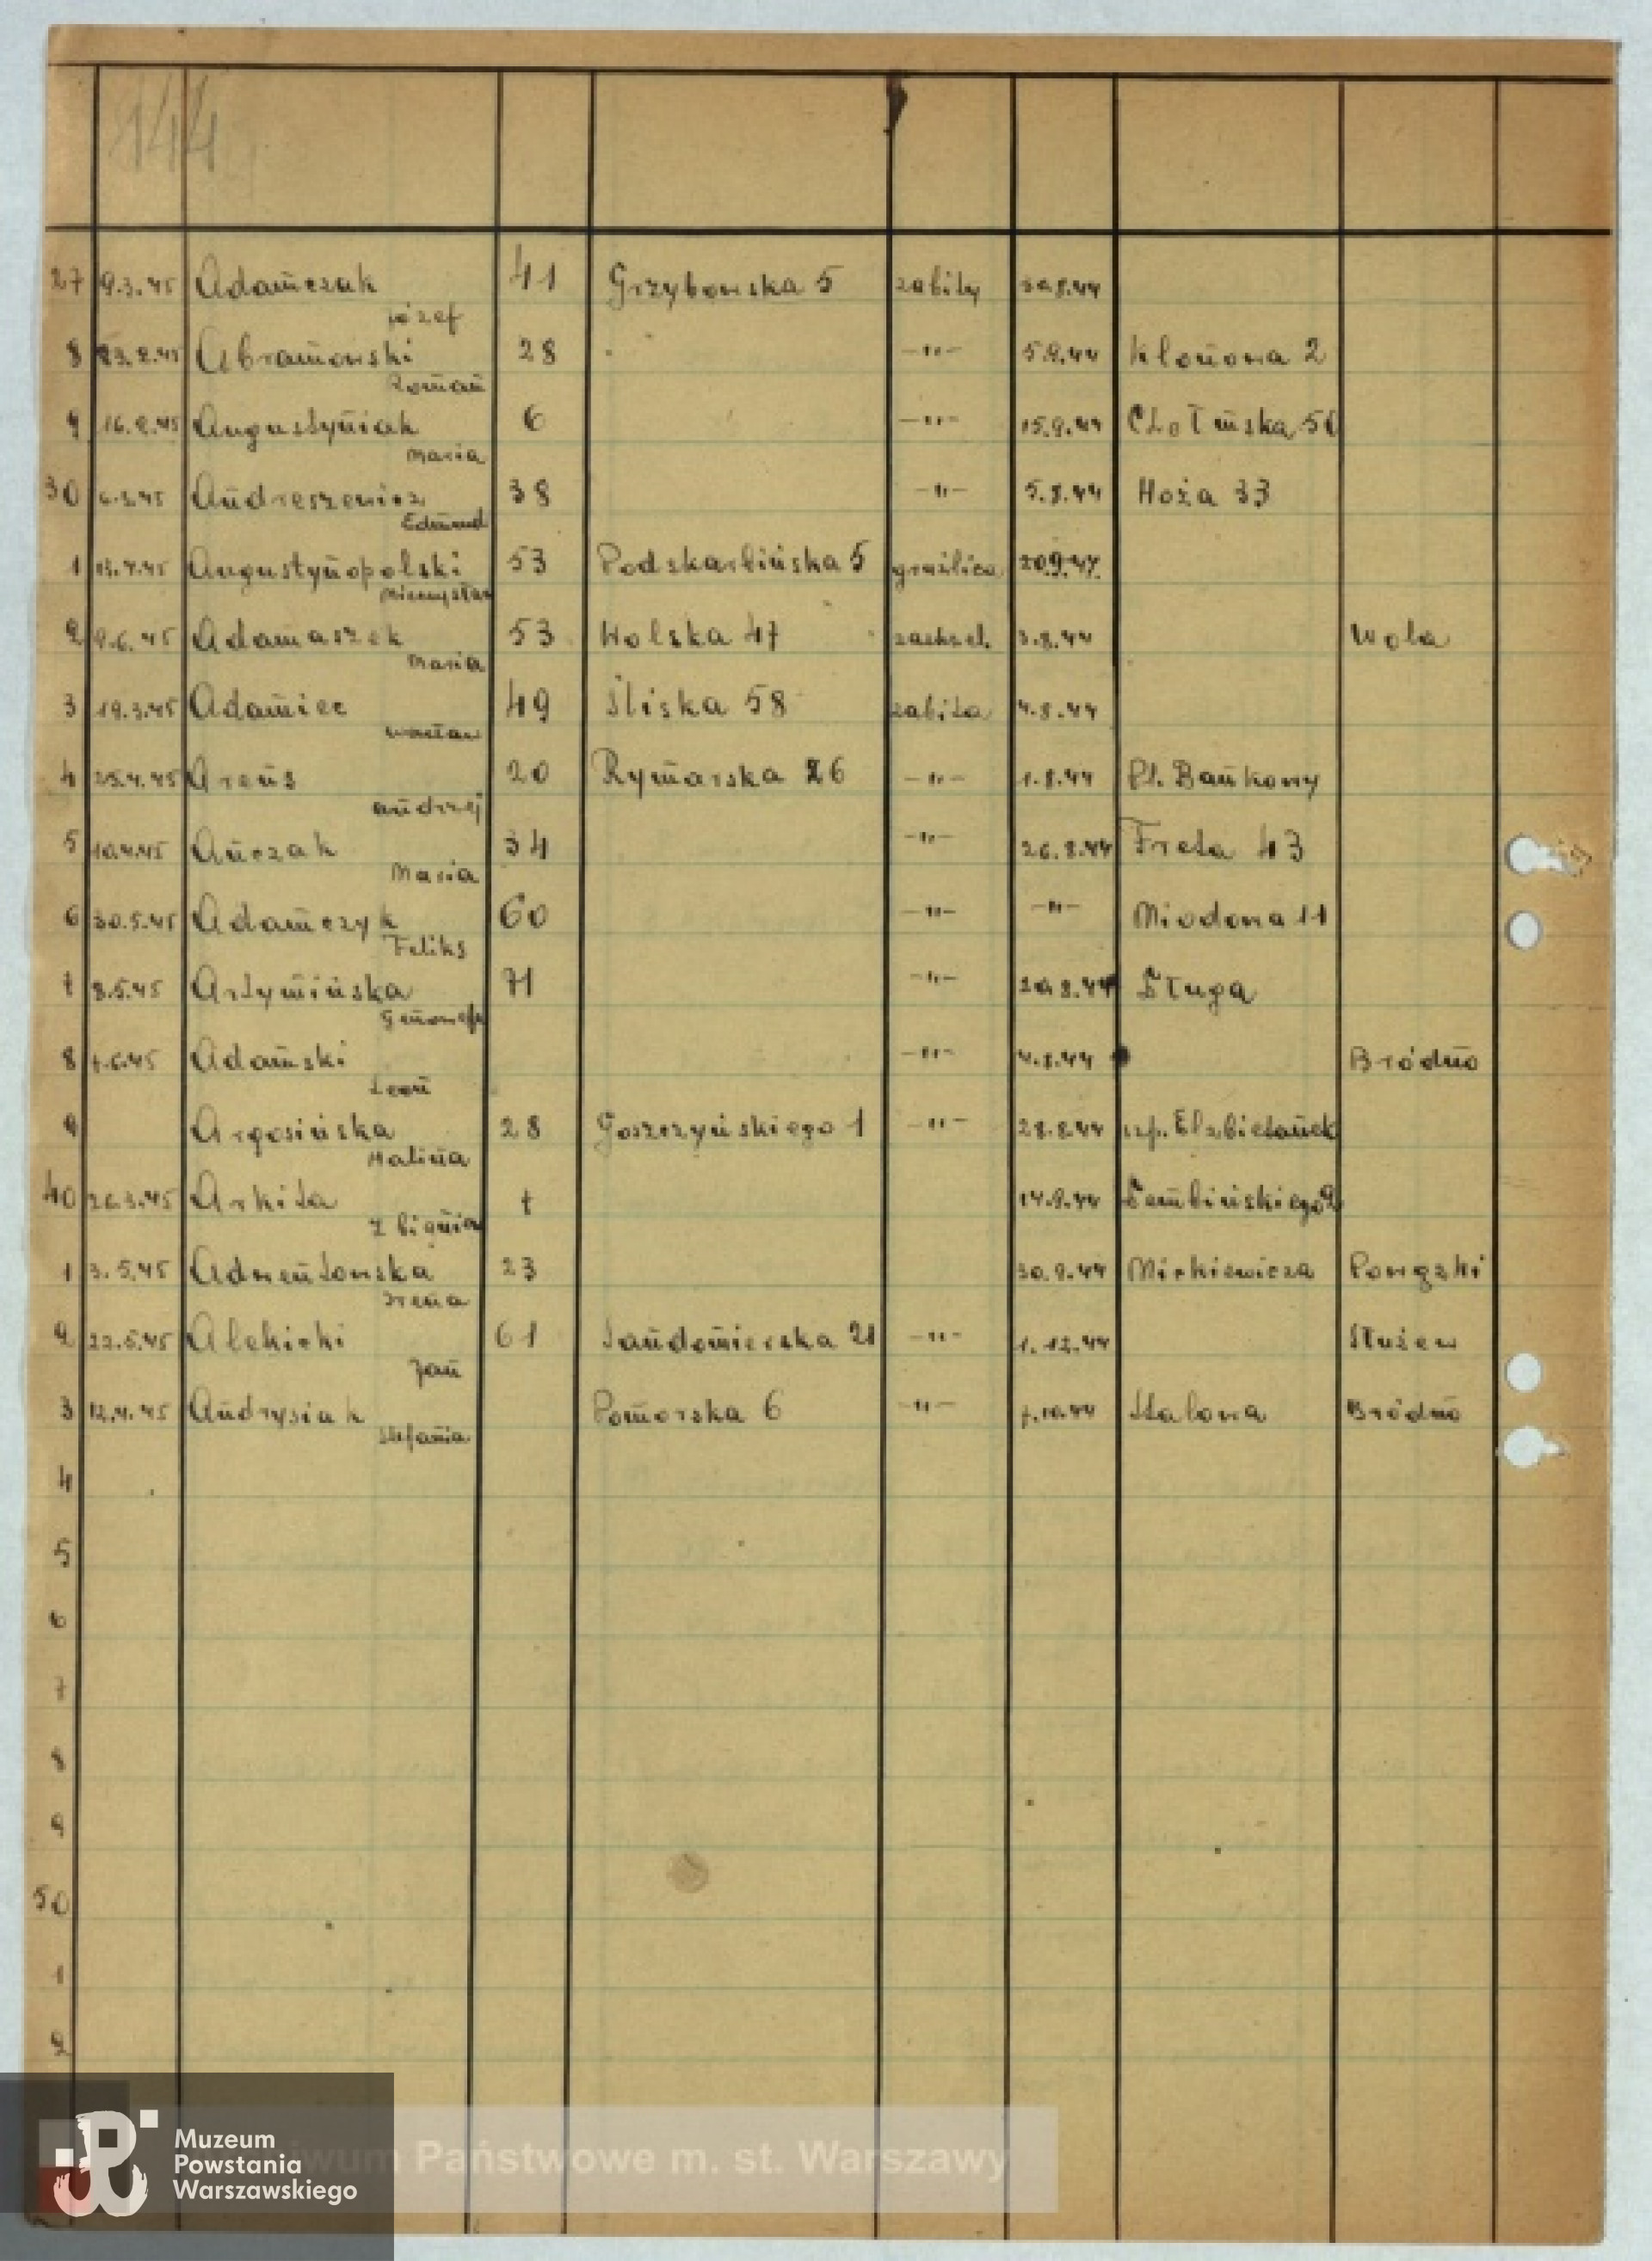 144
27 9.3.45 Adamczak 41 Grzybowska 5 zabity 30.8.44
Józef
8 23.2.45 Abramowski 28 —"— 5.9.44 Klonowa 2
Roman
9 16.2.45 Augustyniak 6 —"— 15.9.44 50
Maria
30 6.3.45 Andreszewicz 38 —"— 5.8.44 Hoża 33
Edmund
1 13.4.45 Augustynopolski 53 Podskarbińska 5 gruźlica 20.9.44
Mieczysław
2 9.6.45 Adamaszek 53 Wolska 47 3.8.44 Wola
Maria
3 19.3.45 Adamiec 49 Śliska 58 zabita 4.8.44
Wacław
4 25.4.45 Arens 20 Rymarska 26 —"— 1.8.44 Pl. Bankowy
Andrzej
5 10.4.45 Anczak 34 —"— 26.8.44 Freta 43
Maria
6 30.5.45 Adamczyk 60 —"— —"— Miodowa 11
Feliks
7 8.5.45 Artymińska 71 —"— 20.8.44 Długa
8 7.6.45 Adamski —"— 4.8.44 Bródno
Leon
9 Argosińska 28 Goszczyńskiego 1 —"— 28.8.44 szp. Elżbietanek
Halina
40 26.3.45 Arkita 7 14.9.44 Dembińskiego 2
Zbigniew
1 3.5.45 23 30.9.44 Mickiewicza Powązki
Irena
2 22.5.45 Alekicki 61 Sandomierska 21 —"— 1.12.44 Służew
Jan
3 12.4.45 Andrysiak Pomorska 6 —"— 7.10.44 Stalowa Bródno
Stefania
4
5
6
7
8
9
50
1
2
Muzeum
Powstania
Warszawskiego
iwum Państwowe m. st. Warszawy